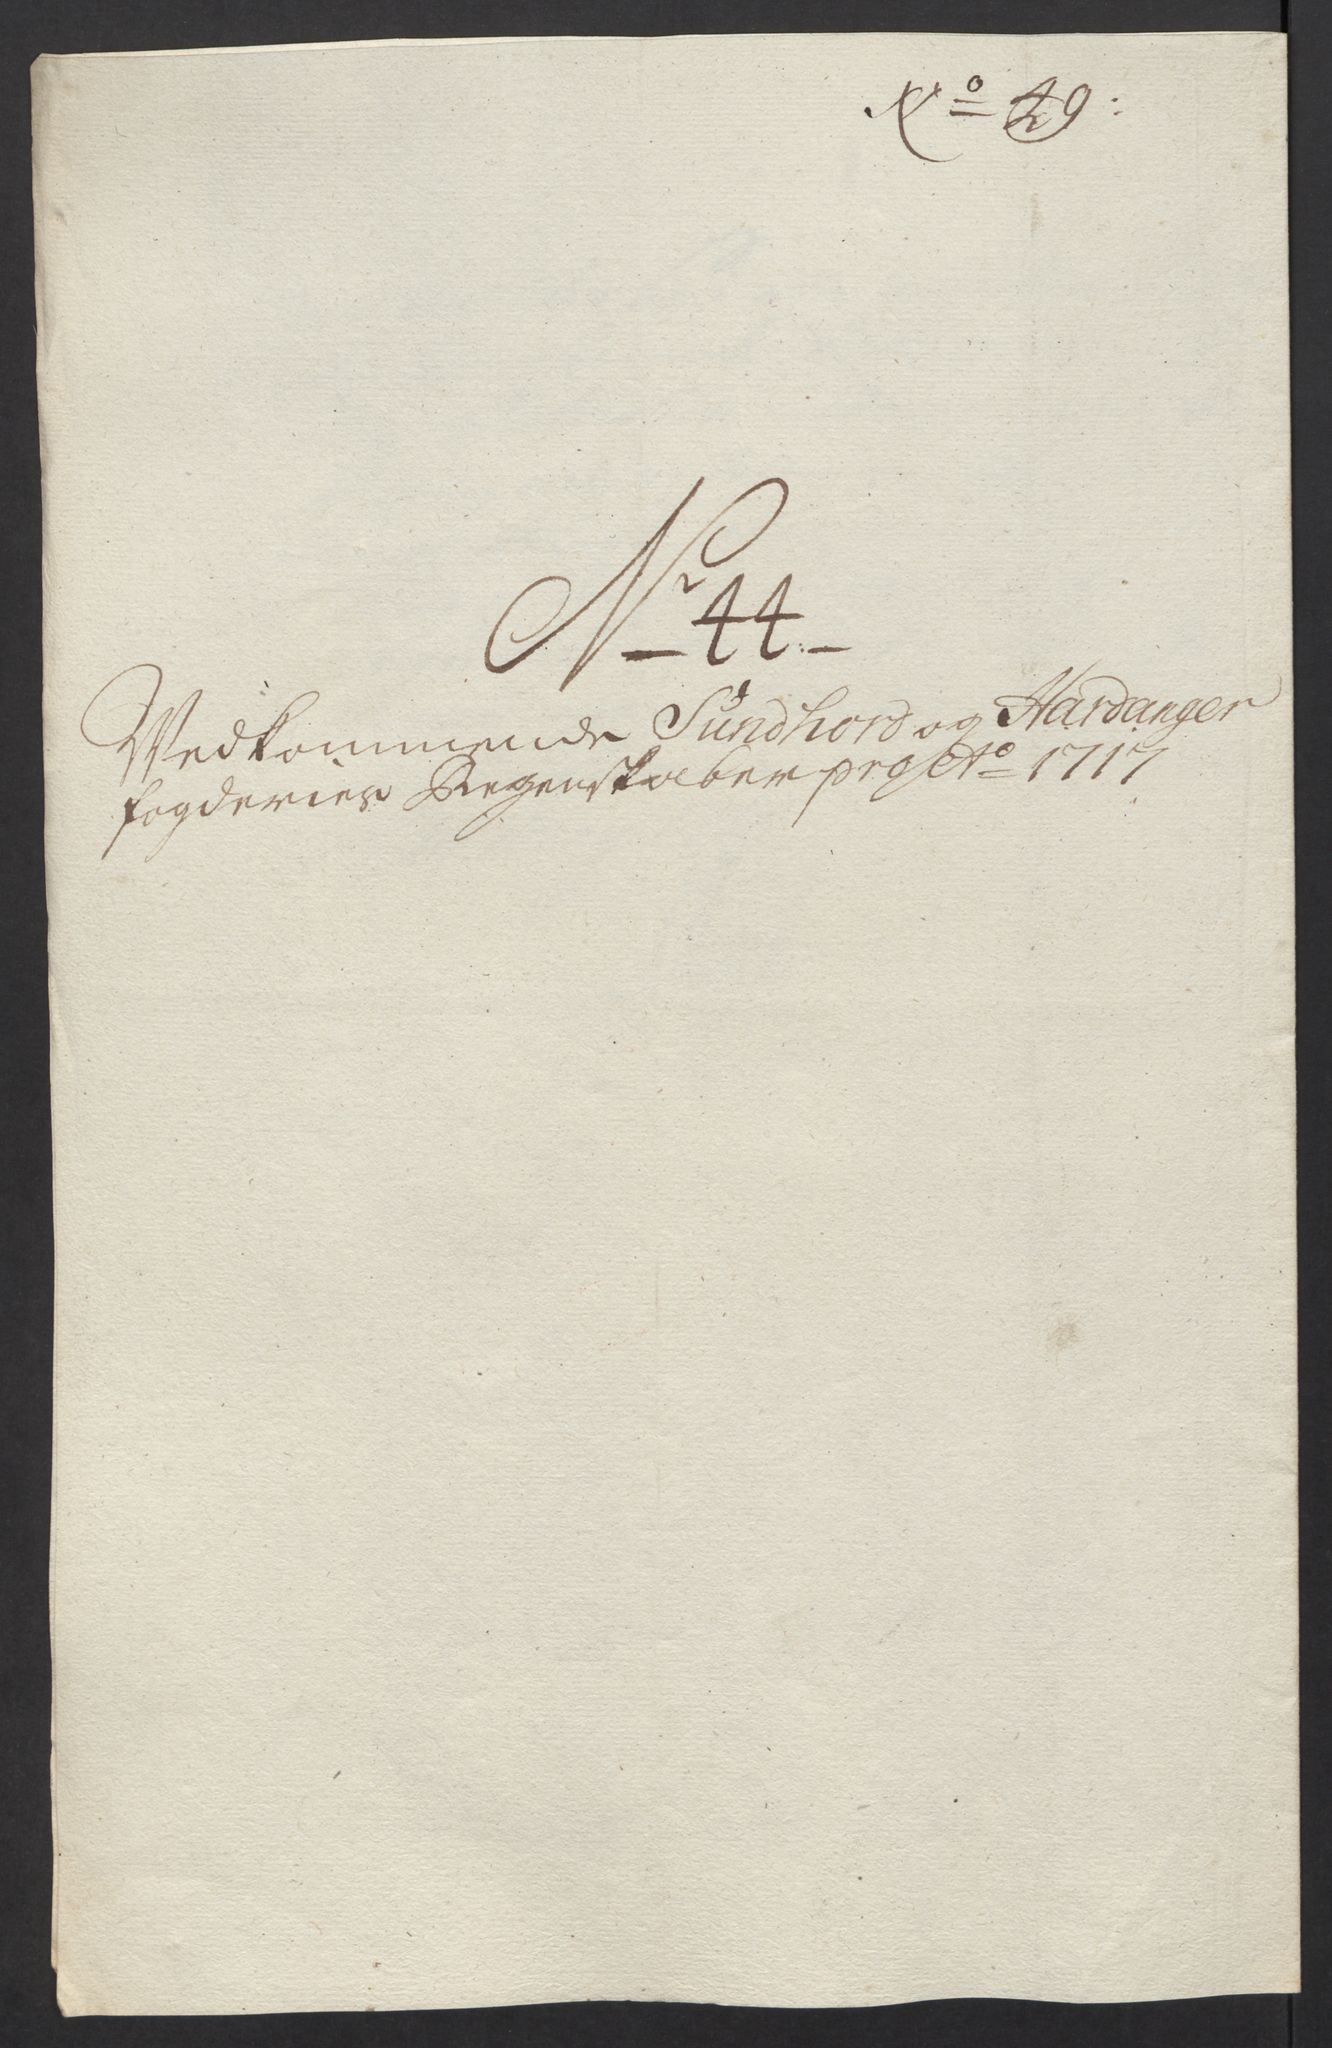 No 49:
Nr 44.
Vedkommende Sundhord og Hardanger
fogderies Regenskaber pro Ao 1717